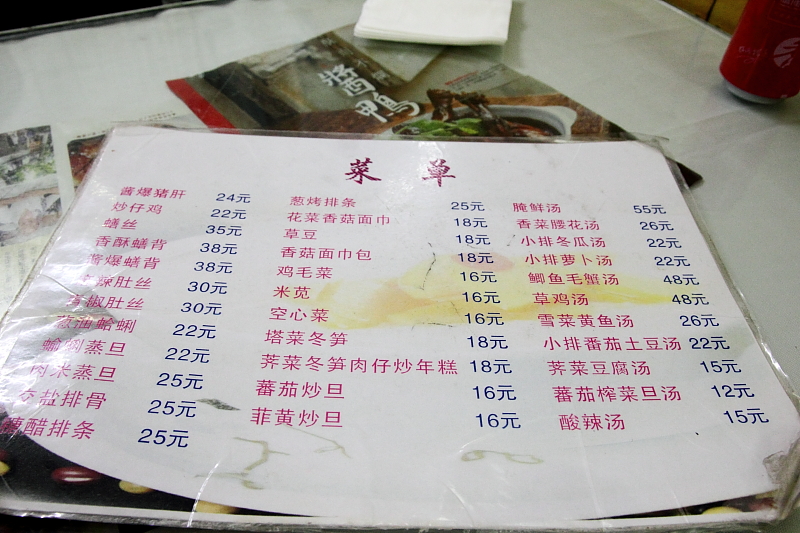 醬鸭
菜 单
酱爆猪肝 24元
炒仔鸡 22元
蟮丝 35元
香酥蟮背 38元
酱爆蟮背 38元
辣肚丝 30元
椒肚丝 30元
葱油蛤蜊 22元
蛤蜊蒸旦 22元
肉米蒸旦 25元
盐排骨 25元
糖醋排条 25元
葱烤排条 25元
花菜香菇面巾 18元
草豆 18元
香菇面巾包 18元
鸡毛菜 16元
米苋 16元
空心菜 16元
塔菜冬笋 18元
荠菜冬笋肉仔炒年糕 18元
蕃茄炒旦 16元
菲黄炒旦 16元
腌鲜汤 55元
香菜腰花汤 26元
小排冬瓜汤 22元
小排萝卜汤 22元
鲫鱼毛蟹汤 48元
草鸡汤 48元
雪菜黄鱼汤 26元
小排番茄土豆汤 22元
荠菜豆腐汤 15元
蕃茄榨菜旦汤 12元
酸辣汤 15元